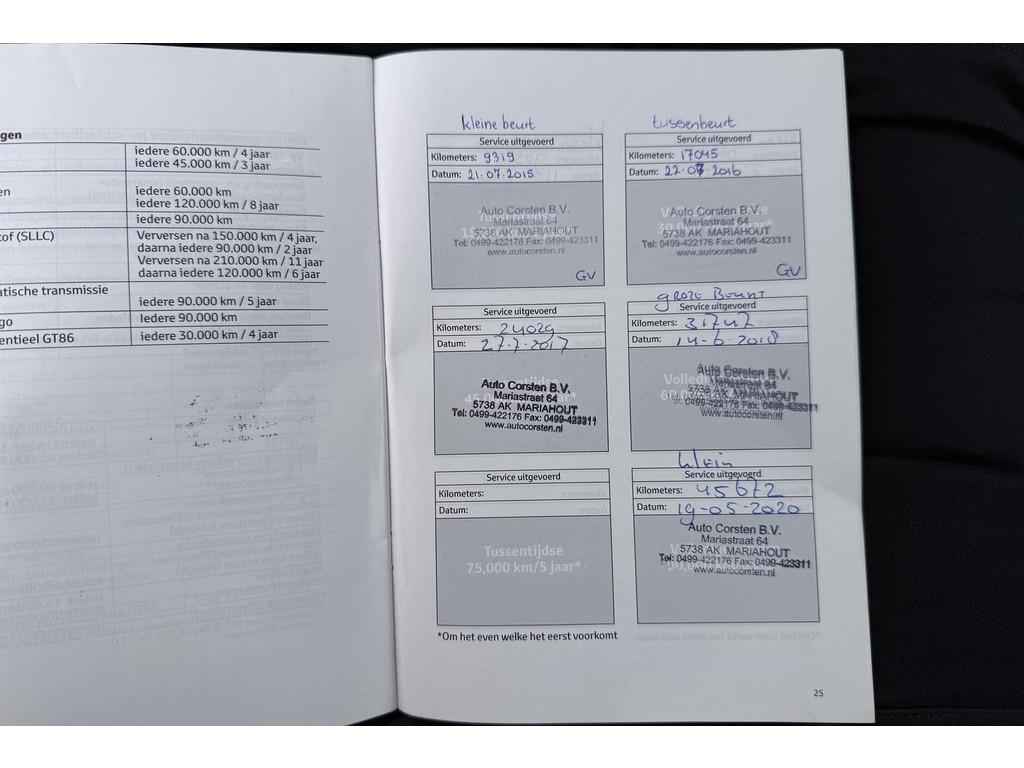 gen
iedere 60.000 km / 4 jaar
iedere 45.000 km / 3 jaar
en
iedere 60.000 km
iedere 120.000 km / 8 jaar
iedere 90.000 km
tof (SLLC)
Verversen na 150.000 km / 4 jaar,
daarna iedere 90.000 km / 2 jaar
Verversen na 210.000 km / 11 jaar
daarna iedere 120.000 km / 6 jaar
atische transmissie
iedere 90.000 km / 5 jaar
go
iedere 90.000 km
entieel GT86
iedere 30.000 km / 4 jaar
kleine beurt
Service uitgevoerd
Kilometers: 9319
Datum: 21-07-2015
Auto Corsten B.V.
Mariastraat 64
5738 AK MARIAHOUT
Tel: 0499-422176 Fax: 0499-423311
www.autocorsten.nl
GV
tussenbeurt
Service uitgevoerd
Kilometers: 17045
Datum: 22-07-2016
Auto Corsten B.V.
Mariastraat 64
5738 AK MARIAHOUT
Tel: 0499-422176 Fax: 0499-423311
www.autocorsten.nl
GV
Service uitgevoerd
Kilometers: 24029
Datum: 27-7-2017
Auto Corsten B.V.
Mariastraat 64
5738 AK MARIAHOUT
Tel: 0499-422176 Fax: 0499-423311
www.autocorsten.nl
groze Beurt
Service uitgevoerd
Kilometers: 31747
Datum: 14-6-2018
Auto Corsten B.V.
Mariastraat 64
5738 AK MARIAHOUT
0499-422176 Fax: 0499-423311
www.autocorsten.nl
Service uitgevoerd
Kilometers:
Datum:
Tussentijdse
75,000 km/5 jaar*
klein
Service uitgevoerd
Kilometers: 45672
Datum: 19-05-2020
Auto Corsten B.V.
Mariastraat 64
5738 AK MARIAHOUT
Tel: 0499-422176 Fax: 0499-423311
www.autocorsten.nl
*Om het even welke het eerst voorkomt
25